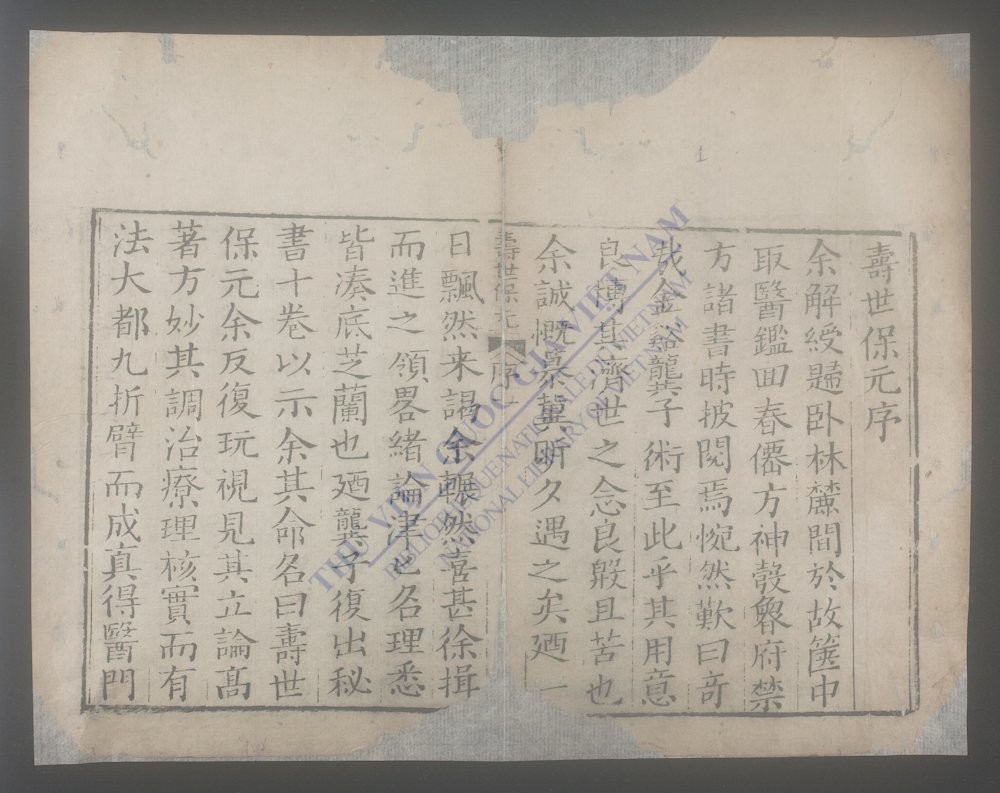 壽世保元序
余解綬歸卧林麓間於故篋中
取醫鑑回春僊方神彀魯府禁
方諸書時披閱焉惋然歎曰奇
哉金谿龔子術至此乎其用意
良博其濟世之念良殷且苦也
余誠慨慕冀昕夕遇之矣廼一
壽世保元 序
日飄然来謁余囅然喜甚徐揖
而進之領畧緒論津〻名理悉
皆湊底芝蘭也廼龔子復出秘
書十卷以示余其命名曰壽世
保元余反復玩視見其立論高
著方妙其調治療理核實而有
法大都九折臂而成真得醫門
1
THƯ VIỆN QUỐC GIA VIỆT NAM
BIBLIOTHEQUE NATIONALE DU VIETNAM
NATIONAL LIBRARY OF VIETNAM